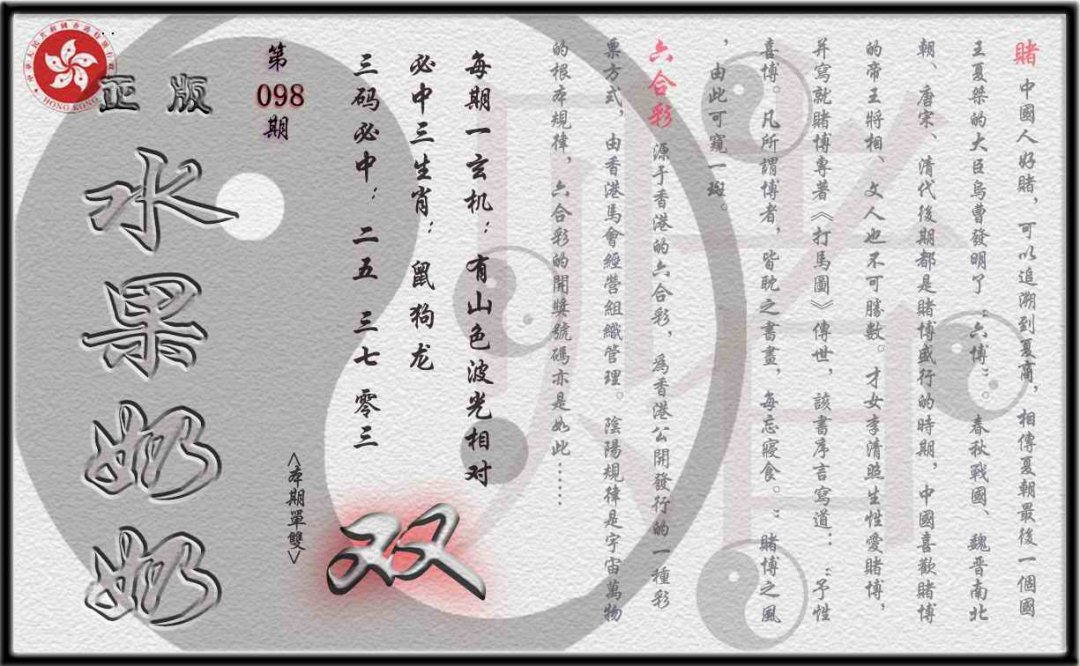 賭 中國人好賭，可以追溯到夏商，相傳夏朝最後一個國
王夏桀的大臣烏曹發明了“六博”。春秋戰國、魏晉南北
朝、唐宋、清代後期都是賭博盛行的時期，中國喜歡賭博
的帝王將相、文人也不可勝數。才女李清照生性愛賭博，
并寫就賭博專著《打馬圖》傳世，該書序言寫道：“予性
喜博。凡所謂博者，皆耽之晝晝，每忘寢食。”賭博之風
，由此可窺一斑。
六合彩 源于香港的六合彩，為香港公開發行的一種彩
票方式，由香港馬會經營組織管理。陰陽規律是宇宙萬物
的根本規律，六合彩的開獎號碼亦是如此……
每期一玄机：有山色波光相对
必中三生肖：鼠狗龙
三码必中：二五 三七 零三
<本期單雙>
双
第
098
期
正版
水果奶奶
HONG KONG